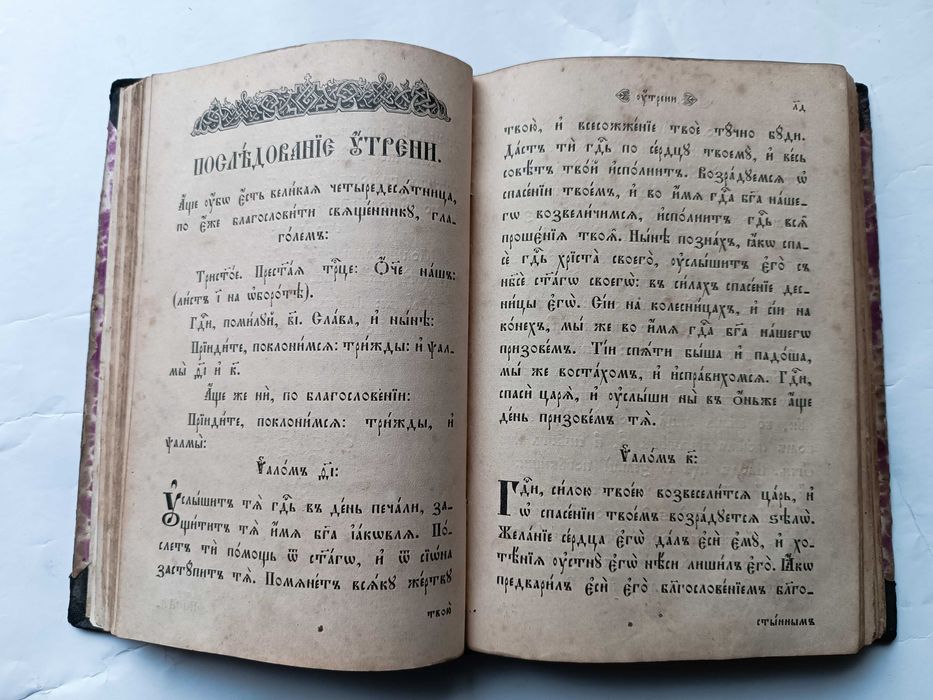 ПОСЛѢ́ДОВАНЇЕ ОУ҆́ТРЕНИ.
А҆́ще ᲂу҆́бѡ є҆́сть вели́кая четыредеся́тница,
по є҆́же благослови́ти свяще́ннику, гла-
го́лемъ:
Трист҃о́е. Прест҃а́я трⷪ҇це: Ѻ҆́ч҃е на́шъ:
(ли́стъ і҃ на ѡ҆боро́тѣ).
Гдⷭ҇и, поми́луй, в҃і. Сла́ва, и҆ ны́нѣ:
Прїиди́те, поклони́мся: три́жды: и҆ ѱал-
мы̀ ѳ҃і и҆ к҃.
А҆́ще же нѝ, по благослове́нїи:
Прїиди́те, поклони́мся: три́жды, и҆
ѱалмы̀:
Ѱало́мъ ѳ҃і:
Оу҆слы́шитъ тѧ̀ гдⷭ҇ь въ де́нь печа́ли, за-
щи́титъ тѧ̀ и҆́мя бг҃а і҆а́кѡвля. По́-
слетъ тѝ по́мощь ѿ ст҃а́гѡ, и҆ ѿ сїѡ́на
засту́питъ тѧ̀. Помяне́тъ вся́ку же́ртву
твою̀
ᲂу҆́трени
л҃д
твою̀, и҆ всесожже́нїе твоѐ ту́чно бу́ди.
Да́стъ тѝ гдⷭ҇ь по се́рдцу твоемꙋ̀, и҆ весь
совѣ́тъ тво́й и҆спо́лнитъ. Возра́дуемся ѡ҆
спасе́нїи твое́мъ, и҆ во и҆́мя гдⷭ҇а бг҃а на́ше-
гѡ возвели́чимся, и҆спо́лнитъ гдⷭ҇ь всѧ̑
проше́нїя твоѧ̑. Ны́нѣ позна́хъ, ꙗ҆́кѡ спа-
сѐ гдⷭ҇ь хрїста̀ своего̀, ᲂу҆слы́шитъ є҆го̀ съ
нб҃сѐ ст҃а́гѡ своегѡ̀: въ си́лахъ спасе́нїе дес-
ни́цы є҆гѡ̀. Сі́и на колесни́цахъ, и҆ сі́и на
ко́нехъ, мы́ же во и҆́мя гдⷭ҇а бг҃а на́шегѡ
призове́мъ. Ті́и спя́ти бы́ша и҆ падо́ша,
мы́ же воста́хомъ, и҆ и҆спра́вихомся. Гдⷭ҇и,
спасѝ царя̀, и҆ ᲂу҆слы́ши ны̀ въ ѻ҆́ньже а҆́ще
де́нь призове́мъ тѧ̀.
Ѱало́мъ к҃:
Гдⷭ҇и, си́лою твое́ю возвесели́тся ца́рь, и҆
ѡ҆ спасе́нїи твое́мъ возра́дуется ѕѣлѡ̀.
Жела́нїе се́рдца є҆гѡ̀ да́лъ є҆сѝ є҆мꙋ̀, и҆ хо-
тѣ́нїя ᲂу҆стнꙋ̀ є҆гѡ̀ нѣ́си лиши́лъ є҆го̀. Ꙗ҆́кѡ
предвари́лъ є҆сѝ є҆го̀ благослове́нїемъ благо-
сты́ннымъ